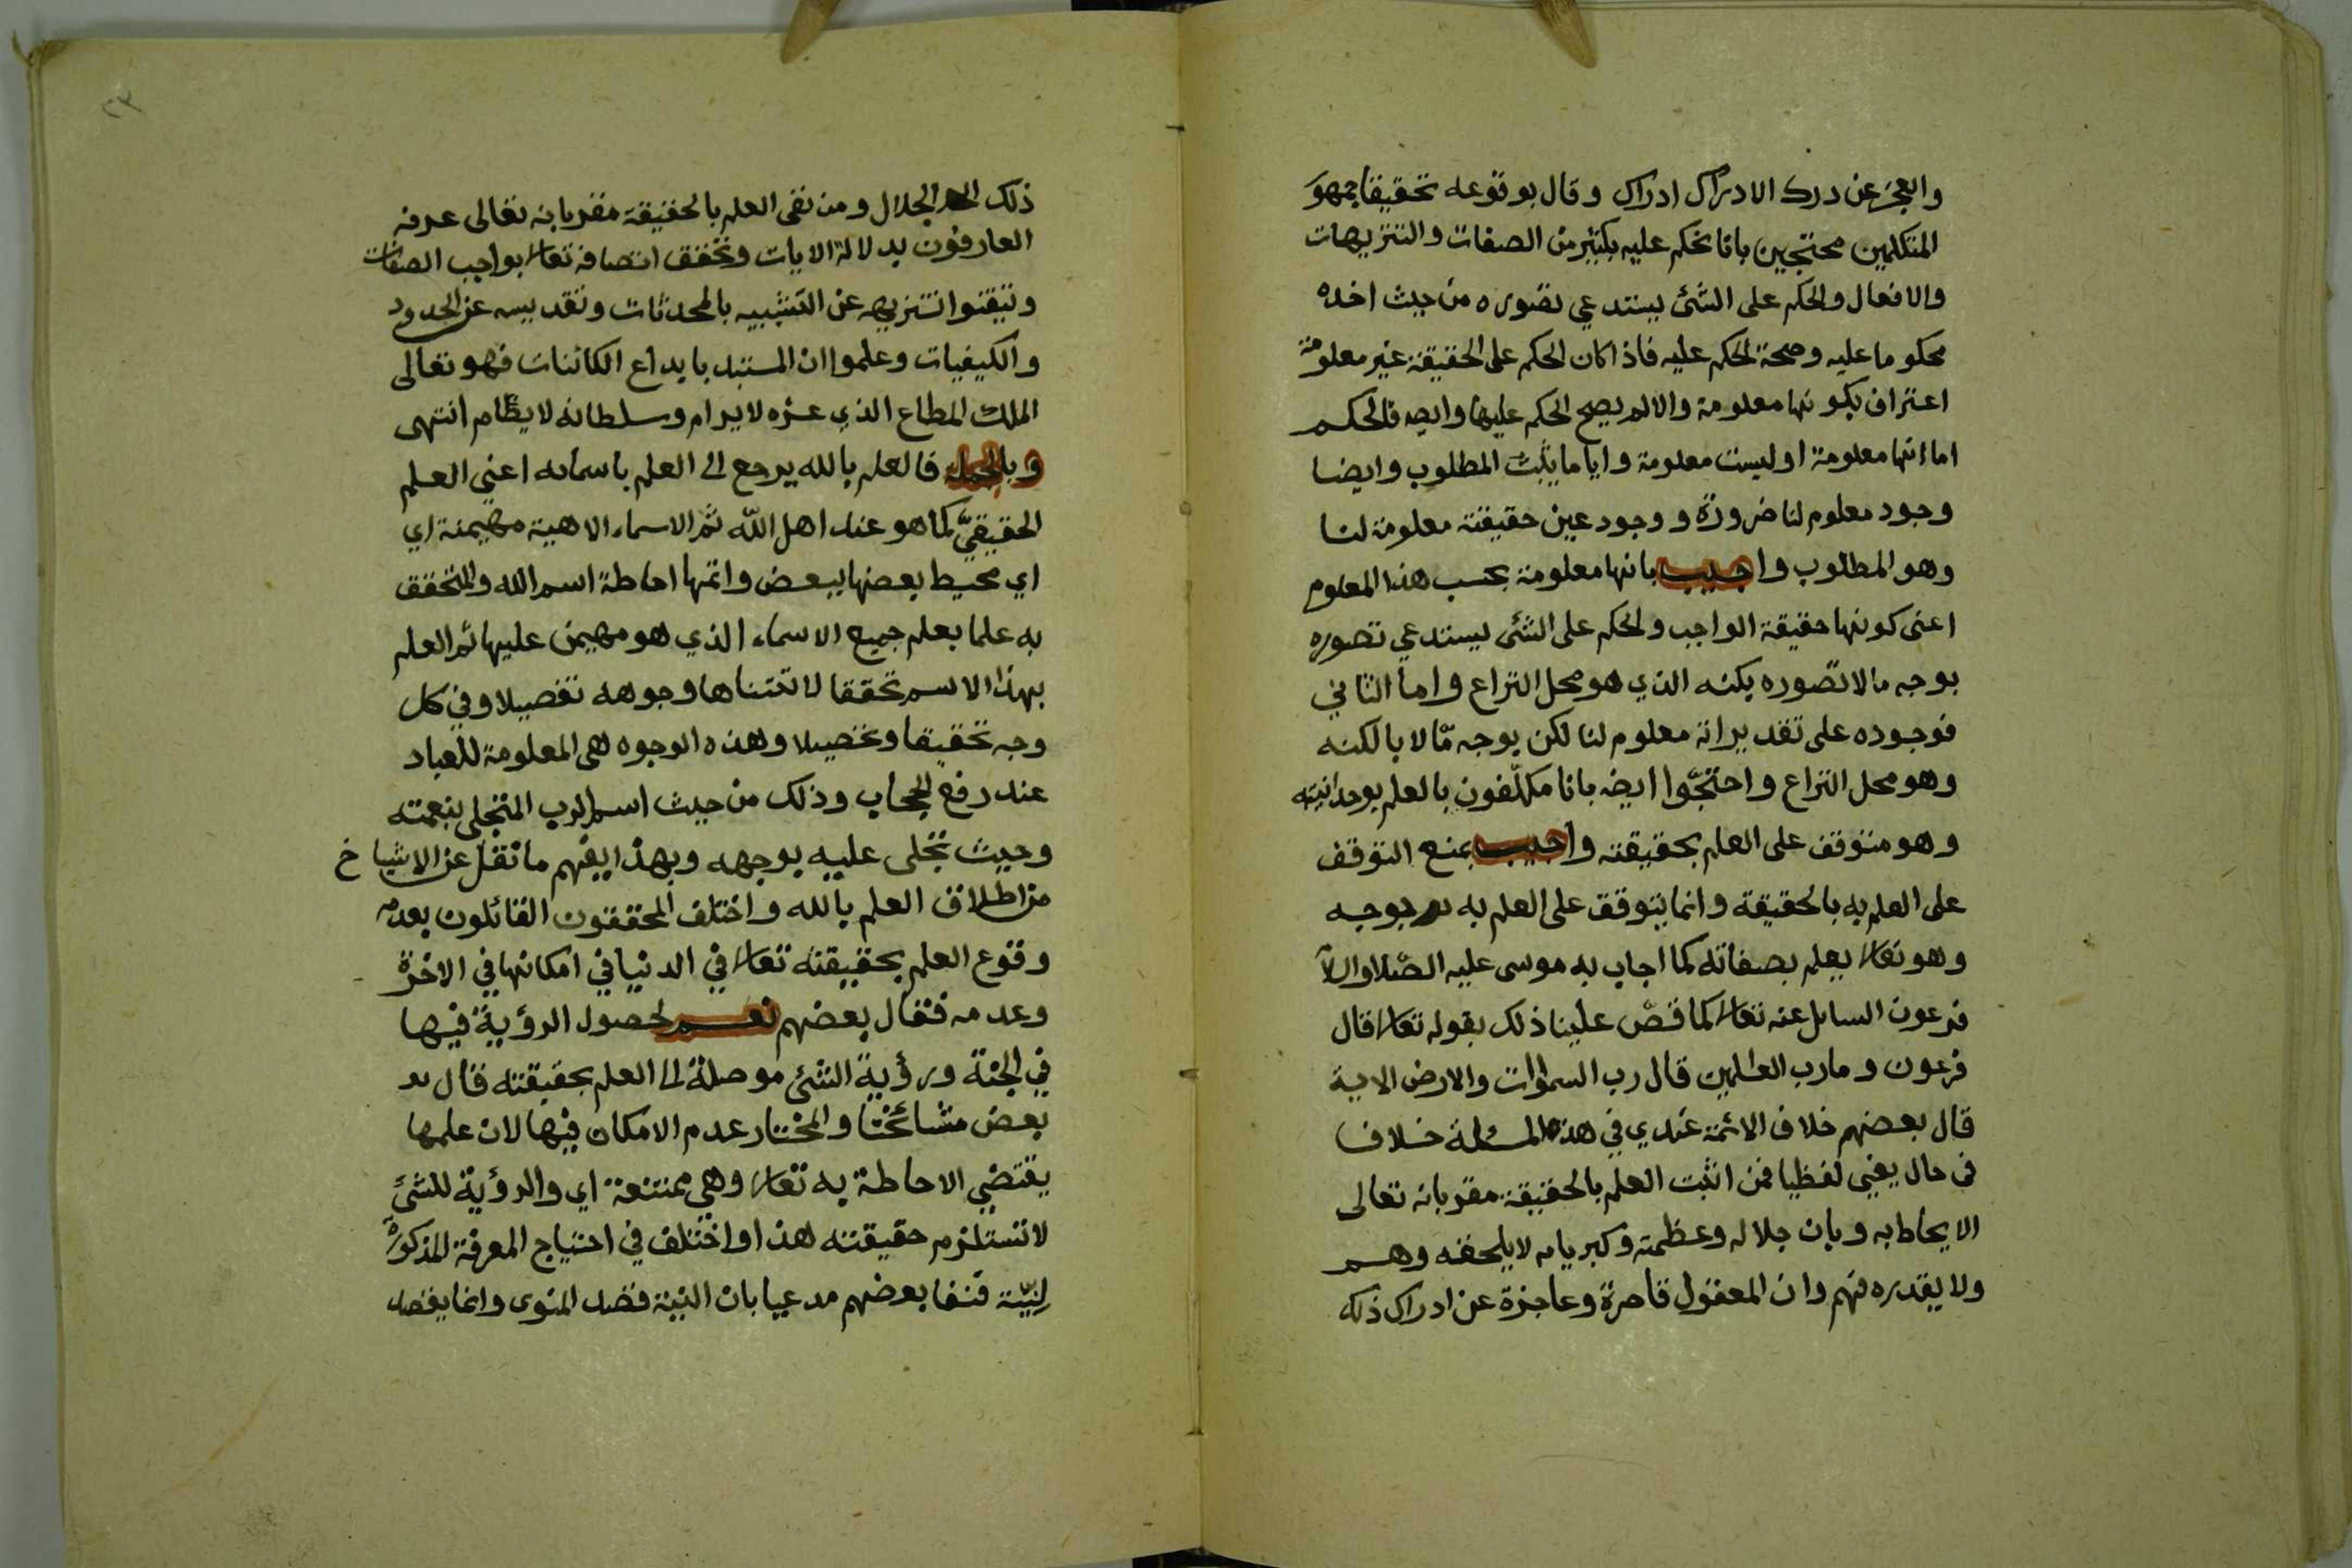 والعجز عن درك الادراك ادراك وقال بوقوعه تحقيقا جمهو
المتكلمين محتجين بانا نحكم عليه بكثير من الصفات والتنزيهات
والافعال والحكم على الشئ يستدعي تصوره من حيث اخذه
محكوما عليه وصحة الحكم عليه فاذا كان الحكم على الحقيقة غير معلومة
اعتراف بكونها معلومة والا لم يصح الحكم عليها وايضه فالحكم
اما انها معلومة او ليست معلومة وايا ما يثبت المطلوب وايضا
وجود معلوم لنا ضرورة ووجود عين حقيقته معلومة لنا
وهو المطلوب واجيب بانها معلومة بحسب هذا المعلوم
اعنى كونها حقيقة الواجب والحكم على الشئ يستدعي تصوره
بوجه ما لا تصوره بكنه الذي هو محل النزاع واما الثاني
فوجوده على تقدير انه معلوم لنا لكن بوجه مّا لا بالكنه
وهو محل النزاع واحتجّوا ايضه بانا مكلّفون بالعلم بوحدانيته
وهو متوقف على العلم بحقيقته واجيب بمنع التوقف
على العلم به بالحقيقة وانما يتوقف على العلم به بوجه
وهو تعالى يعلم بصفاته كما اجاب به موسى عليه الصلاوالسلا
فرعون السايل عنه تعالى كما قصّ علينا ذلك بقوله تعالى قال
فرعون وما رب العالمين قال رب السموات والارض الاية
قال بعضهم خلاف الائمة عندي في هذه المسئلة خلاف
فى حال يعني لفظيا فمن اثبت العلم بالحقيقة مقر بانه تعالى
الا يحاط به وبان جلاله وعظمته وكبريايه لا يلحقه وهم
ولا يقدره فهم وان المعقول قاصرة وعاجزة عن ادراك ذلك
٢٣
ذلك الجلال ومن نفى العلم بالحقيقة مقر بانه تعالى عرفه
العارفون بدلالة الايات وتحقق اتصافه تعالى بواجب الصفات
وتيقنوا تنزيهه عن التشبيه بالمحدثات وتقديسه عن الحدود
والكيفيات وعلموا ان المستبد بابداع الكائنات فهو تعالى
الملك المطاع الذي عزه لا يرام وسلطانه لا يضام انتهى
وبالجمله فالعلم بالله يرجع الى العلم باسمائه اعني العلم
الحقيقيّ كما هو عند اهل الله ثم الاسماء الاهية مهيمنة اي
اي محيط بعضها ببعض واتمها احاطة اسم الله والمتحقق
به علما يعلم جميع الاسماء الذي هو مهيمن عليها ثم العلم
بهذا الاسم تحققا لا تتناها وجوهه تفصيلا وفي كل
وجه تحقيقا وتحصيلا وهذه الوجوه هى المعلومة للعباد
عند رفع الحجاب وذلك من حيث اسم الرب المتجلي بنعمته
وحيث تجلى عليه بوجهه وبهذا يفهم ما نقل عن الاشياخ
من اطلاق العلم بالله واختلف المحققون القائلون بعدم
وقوع العلم بحقيقته تعالى في الدنيا في امكانها في الاخرة
وعدمه فقال بعضهم نعم لحصول الرؤية فيها
في الجنة ورؤية الشئ موصلة الى العلم بحقيقته قال
بعض مشائخنا والمختار عدم الامكان فيها لان علمها
يقتضي الاحاطة به تعالى وهي ممتنعة اي والرؤية للشئ
لا تستلزم حقيقته هذا واختلف في احتياج المعرفة المذكورة
لِنيّة فنفا بعضهم مدعيا بان النية قصد المنوى وانما يقصد